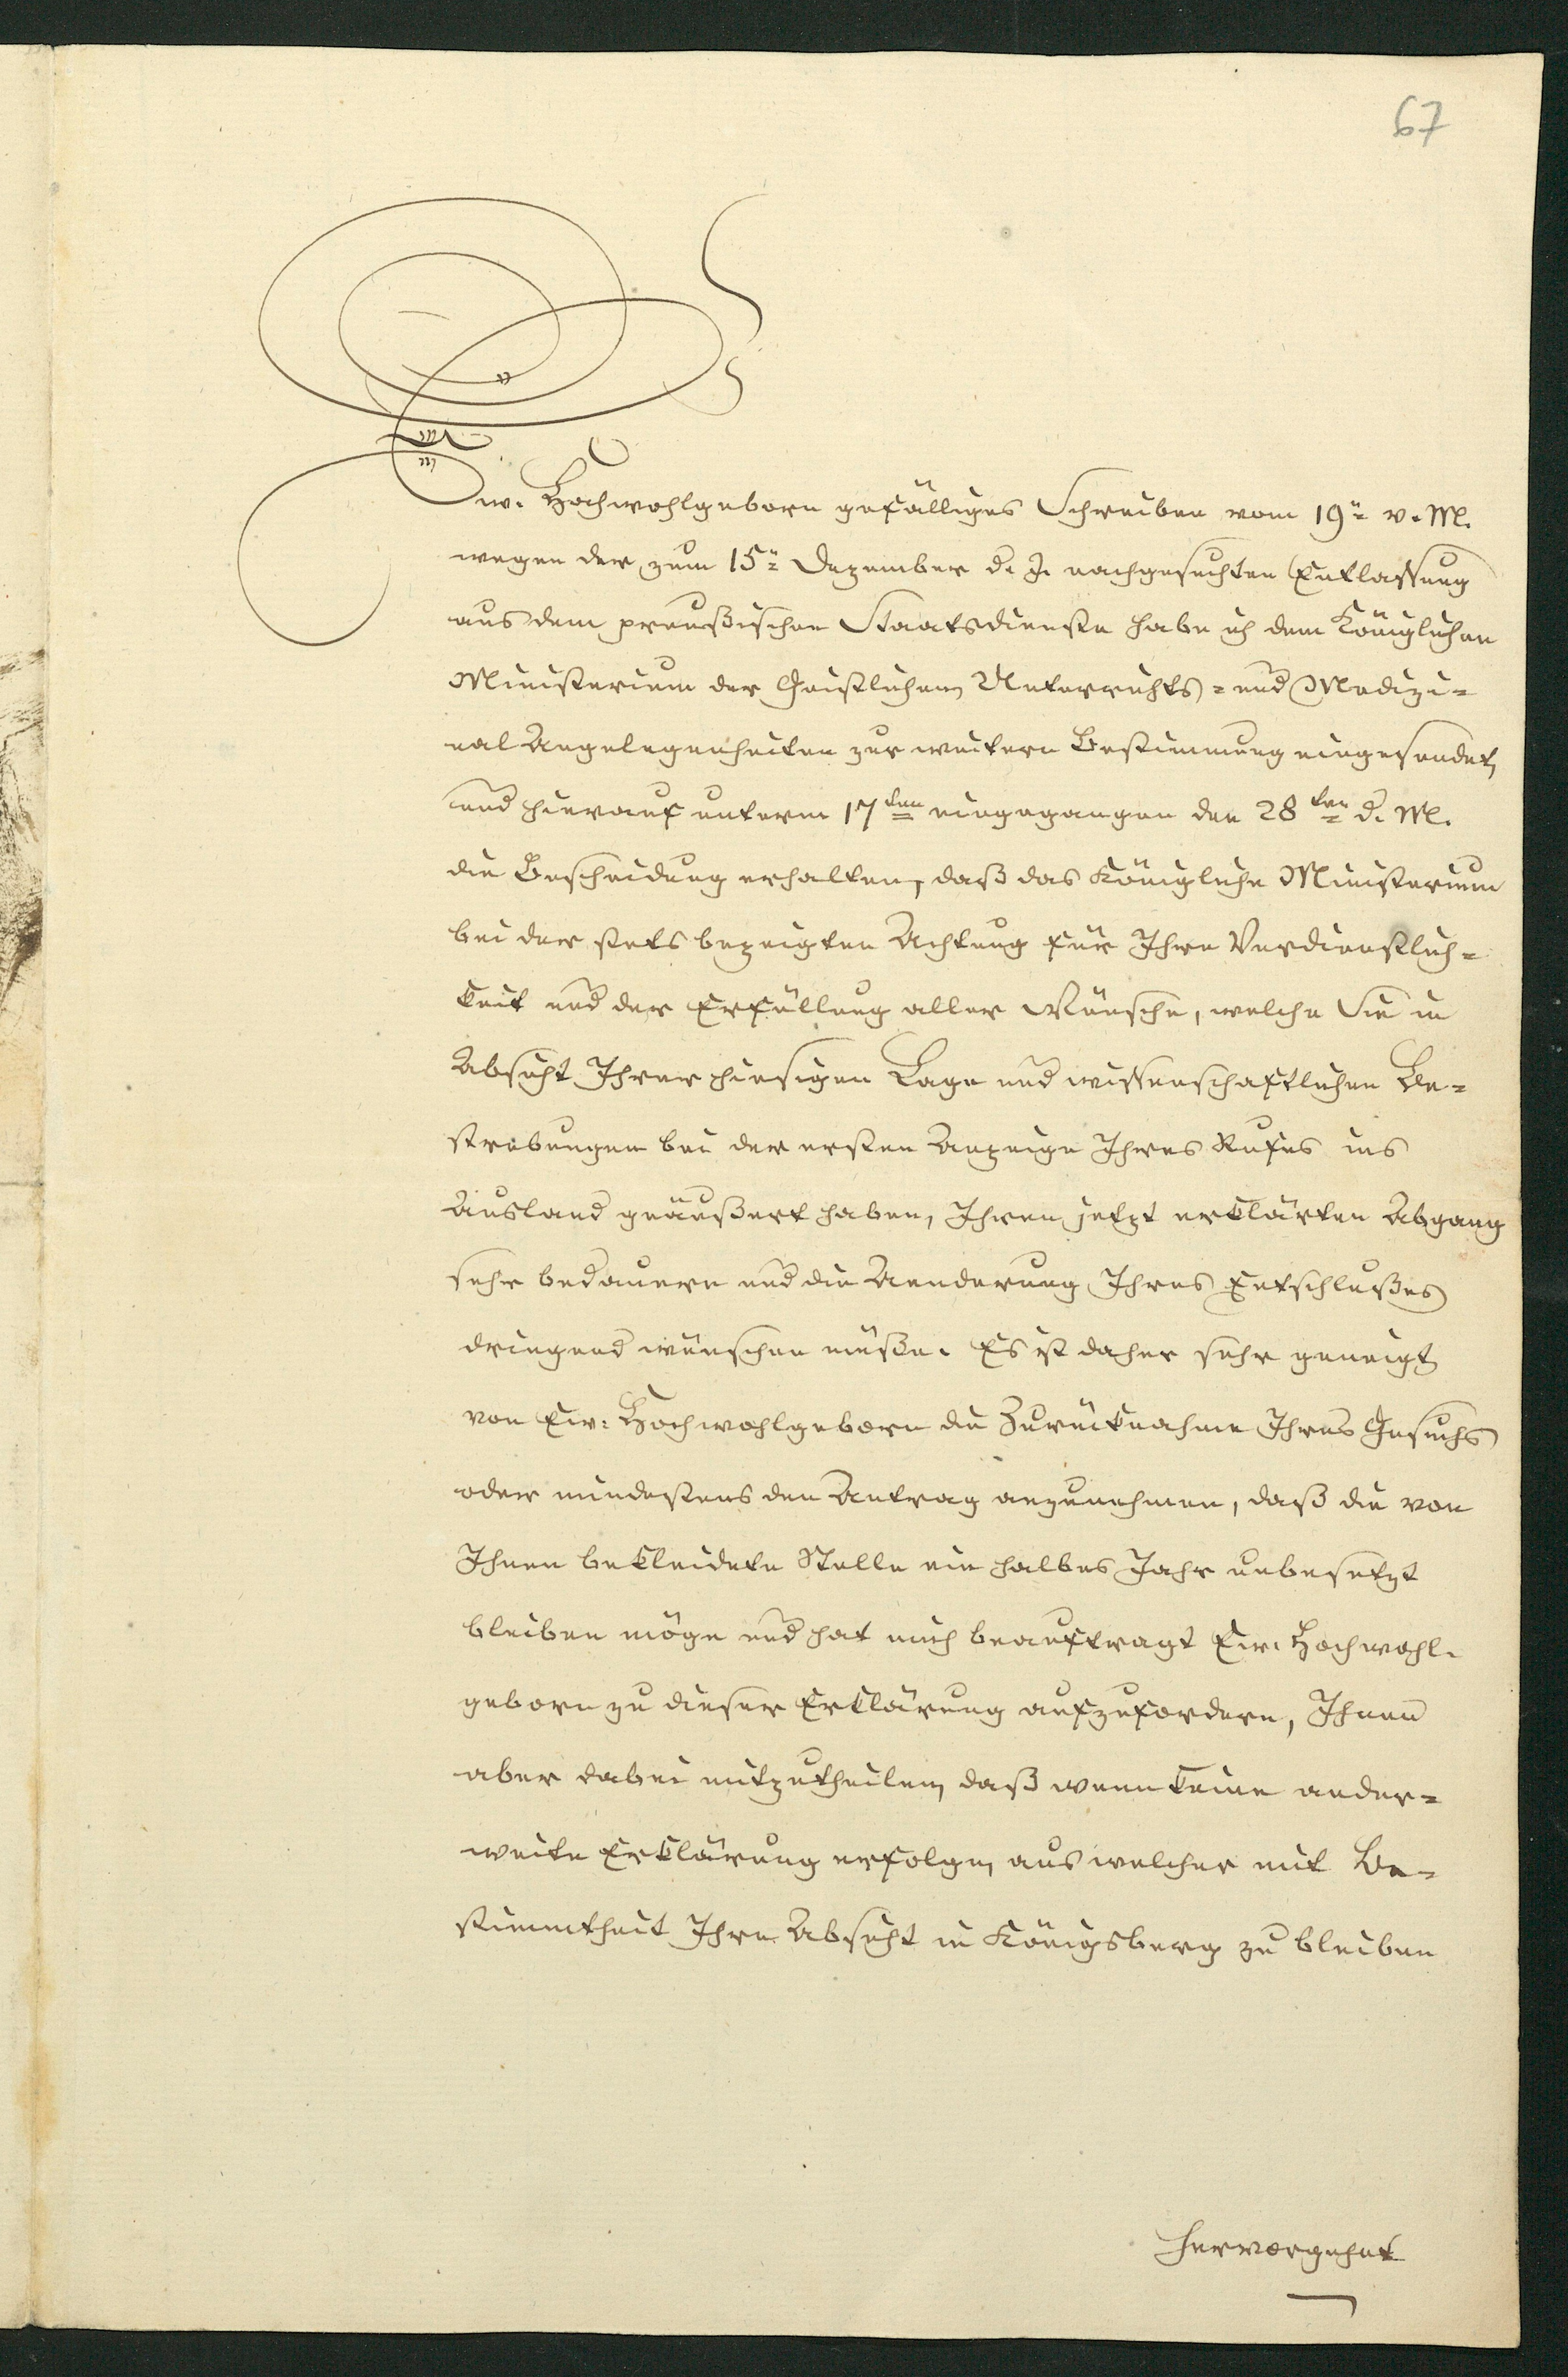 67
Ew. Hochwohlgeborn gefälliges Schreiben vom 19n v. M.
wegen der zum 15n Dezember d. J. nachgesuchten Entlassung
aus dem preußischen Staatsdienste habe ich dem Königlichen
Ministerium der Geistlichen, Unterrichts= und Medizi=
nal Angelegenheiten zur weitern Bestimmung eingesendet,
und hierauf unterm 17ten eingegangen den 28ten d. M.
die Bescheidung erhalten, daß das Königliche Ministerium
bei der stets bezeigten Achtung für Ihre Verdienstlich=
keit und der Erfüllung aller Wünsche, welche Sie in
Absicht Ihrer hiesigen Lage und wissenschaftlichen Be=
strebungen bei der ersten Anzeige Ihres Rufes ins
Ausland geäußert haben, Ihren jetzt erklärten Abgang
sehr bedauern und die Aenderung Ihres Entschlußes
dringend wünschen müße. Es ist daher sehr geneigt,
von Ew: Hochwohlgeborn die Zurücknahme Ihres Gesuchs
oder mindestens den Antrag anzunehmen, daß die von
Ihnen bekleidete Stelle ein halbes Jahr unbesetzt
bleiben möge und hat mich beauftragt Ew. Hochwohl=
geborn zu dieser Erklärung aufzufordern, Ihnen
aber dabei mitzutheilen, daß wenn keine ander=
weite Erklärung erfolge, aus welcher mit Be=
stimmtheit Ihre Absicht in Königsberg zu bleiben
hervorgehet